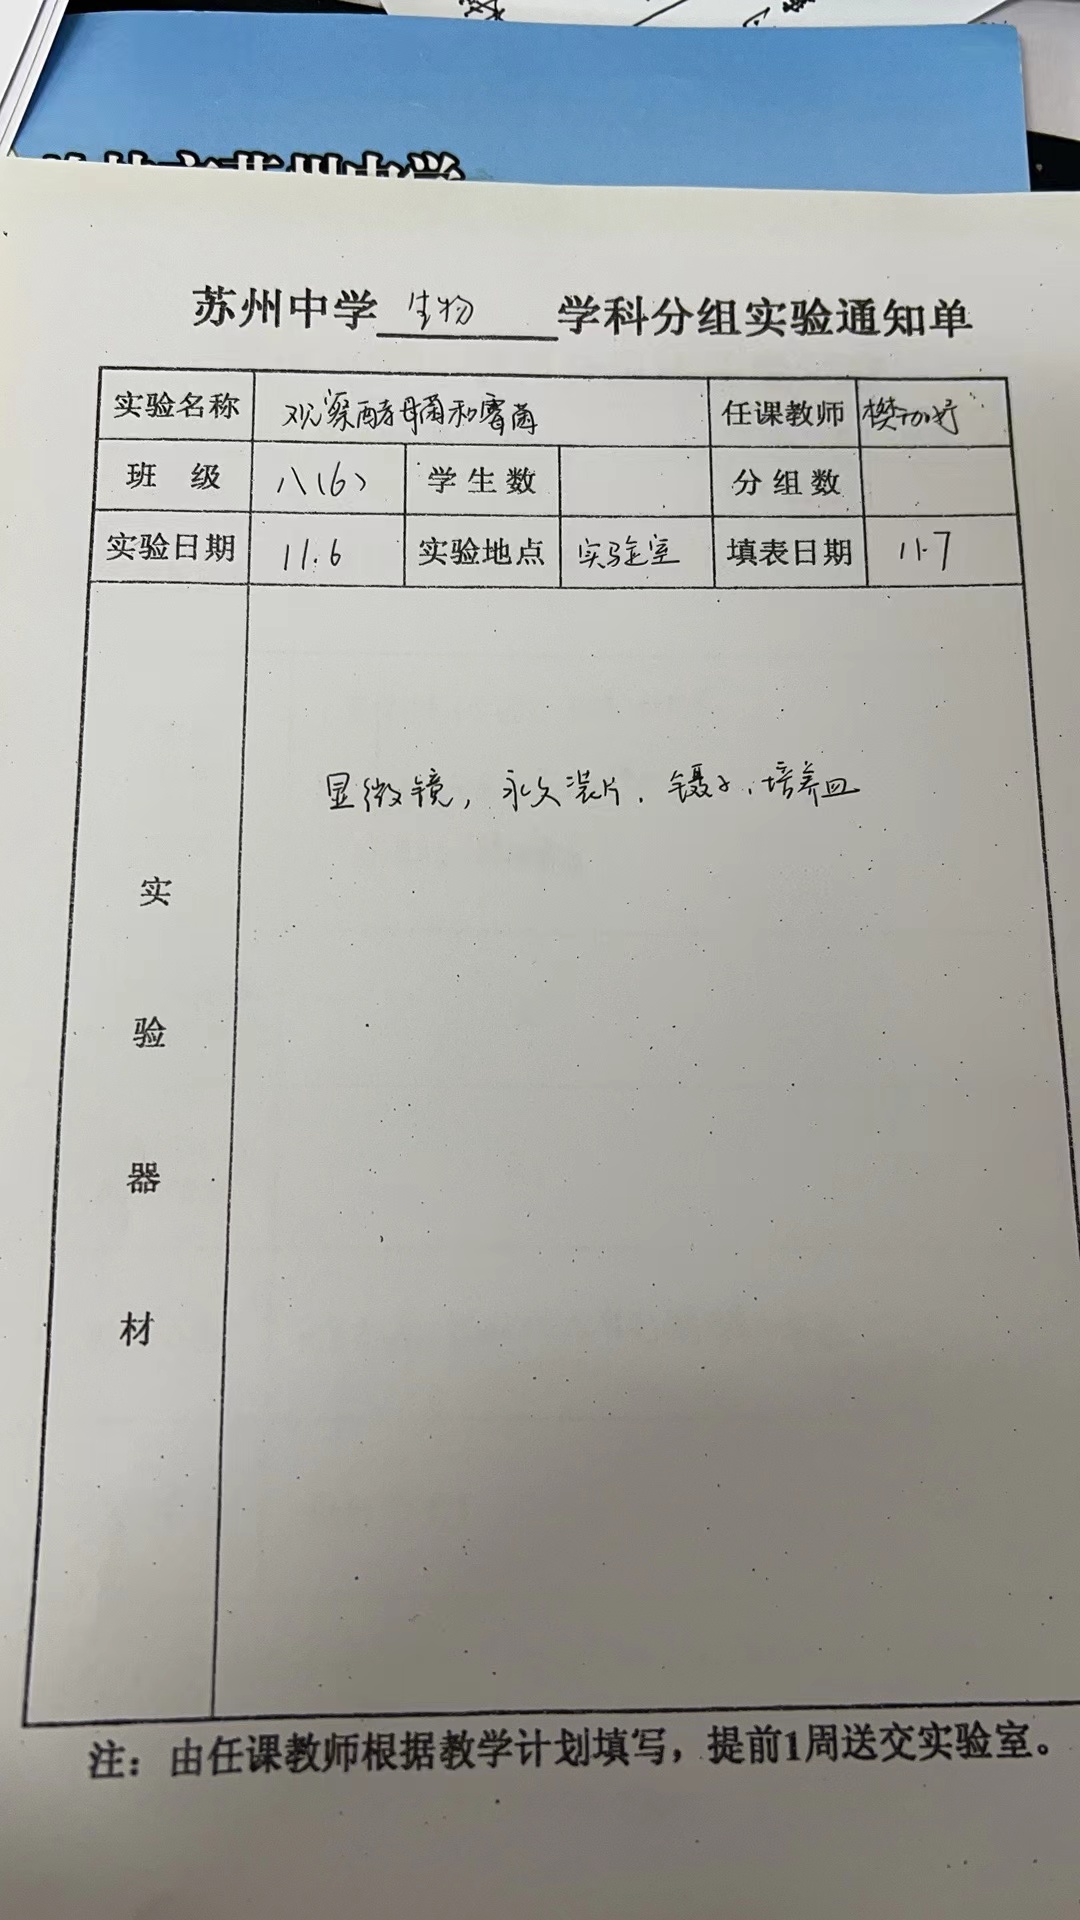 苏州中学
苏州中学 生物 学科分组实验通知单
实验名称 观察酵母菌和霉菌 任课教师
班 级 八(6) 学生数 分组数
实验日期 11.6 实验地点 实验室 填表日期 11.7
显微镜, 永久装片、镊子、培养皿
实
验
器
材
注：由任课教师根据教学计划填写，提前1周送交实验室。